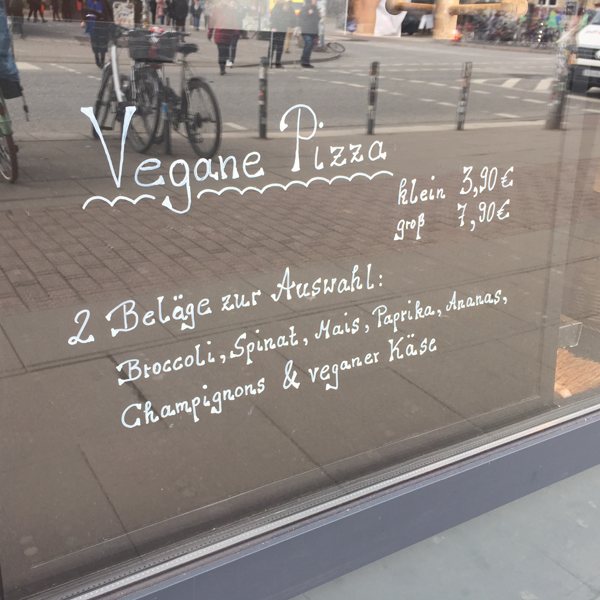 Vegane Pizza
klein 3,90€
groß 7,90€
2 Beläge zur Auswahl:
Broccoli, Spinat, Mais, Paprika, Ananas,
Champignons & veganer Käse